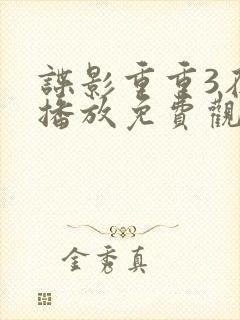 諜影重重3在
播放免費觀
金秀真